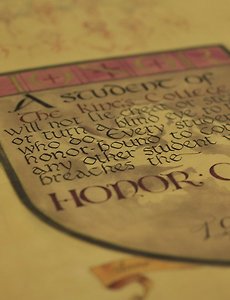 1 9 4 2
A STUDENT OF
The King's College
will not lie cheat or
or turn a blind eye to
who do. Every student
honor-bound to
any other student
breaches the
HONOR
19